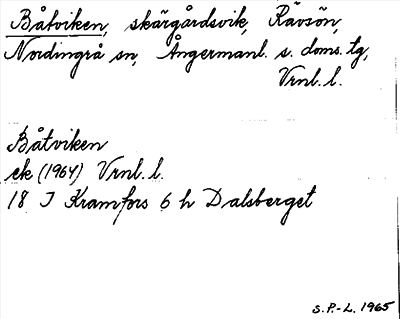 Båtviken, skärgårdsvik, Rävsön,
Nordingrå sn, Ångermanl. s. doms. tg,
Vrnl. l.
Båtviken
ek (1964) Vrnl. l.
18 I Kramfors 6 h Dalsberget
S.P.-L. 1965